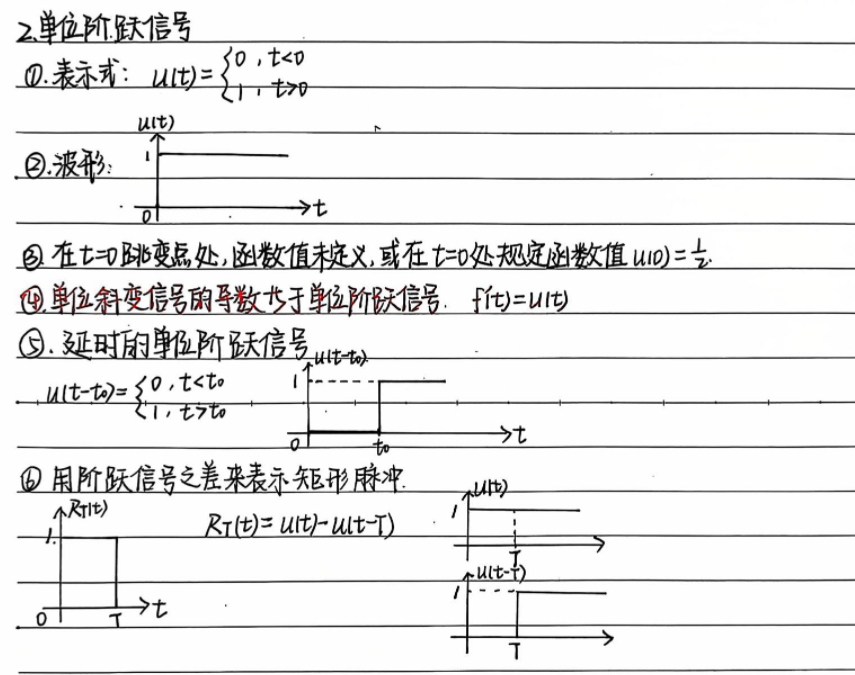 2.单位阶跃信号
①.表示式: u(t)={0,t<0
1,t>0
u(t)
②.波形:
1
0
t
③在t=0跳变点处,函数值未定义,或在t=0处规定函数值u(0)=1/2.
④.单位斜变信号的导数等于单位阶跃信号. f'(t)=u(t)
⑤.延时的单位阶跃信号
u(t-t₀)
u(t-t₀)={0,t<t₀
1,t>t₀
1
0
t₀
t
⑥用阶跃信号之差来表示矩形脉冲.
R_T(t)
R_T(t)=u(t)-u(t-T)
u(t)
1
1
T
u(t-T)
1
0
T
t
T